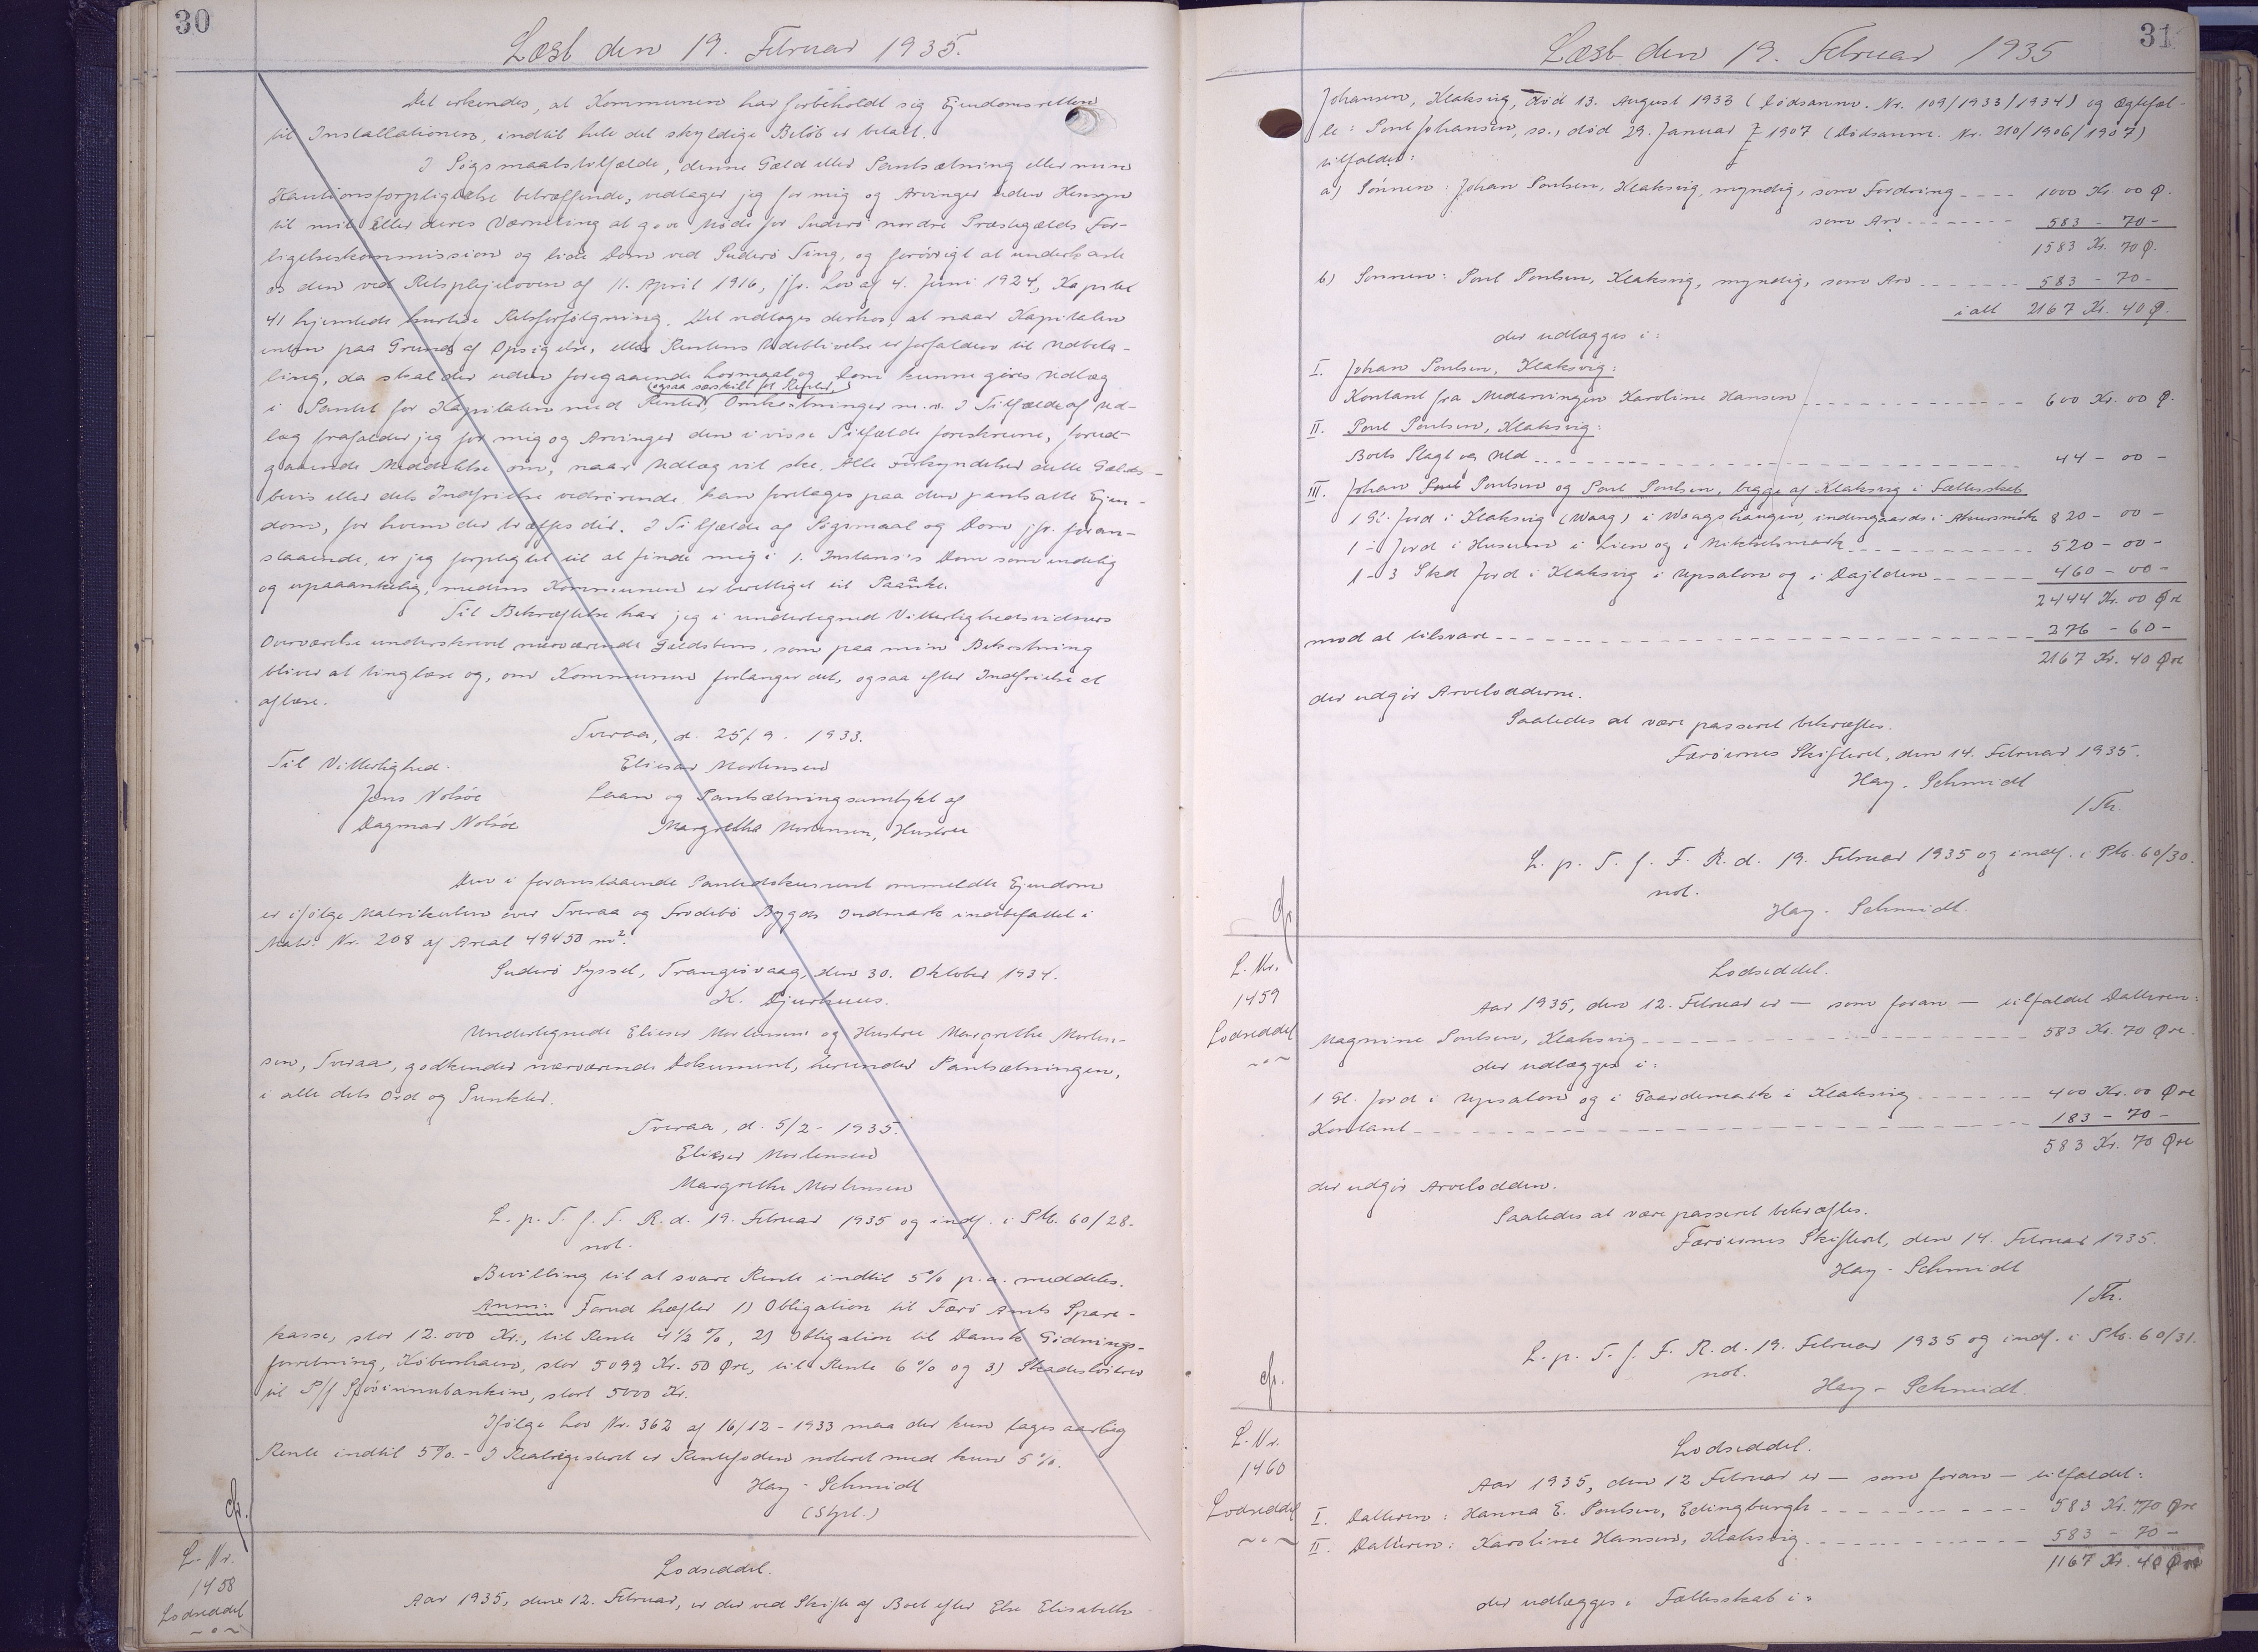 30
Læst den 19. Februar 1935.
Det erkendes, at Kommunen har forbeholdt sig Ejendomsretten
til Installationen, indtil hele det skyldige Beløb er betalt.
I Søgsmaalstilfælde, denne Gæld eller Pantsætning eller min
Kautionsforpligtelse betræffende, vedtager jeg for mig og Arvinger uden Hensyn
til mit eller deres Værneting at give Møde for Suderø nordre Præstegælds For-
ligelseskommission og lide Dom ved Suderø Ting, og forøvrigt at underkaste
os den ved Retsplejeloven af 11. April 1916, jfr. Lov af 4. Juni 1924, Kapitel
41 hjemlede hurtige Retsforfølgning. Det vedtages derhos, at naar Kapitalen
enten paa Grund af Opsigelse, eller Rentens Udeblivelse er forfalden til Udbeta-
ling, da skal der uden foregaaende Lovmaal og Dom kunne gøres Udlæg
(ogsaa særskilt for Renter)
i Pantet for Kapitalen med Renter, Omkostninger m.v. I Tilfælde af Ud-
læg frafalder jeg for mig og Arvinger den i visse Tilfælde foreskrevne, forud-
gaaende Meddelelse om, naar Udlæg vil ske. Alle Forkyndelser dette Gælds-
bevis eller dets Indfrielse vedrørende, kan foretages paa den pantsatte Ejen-
dom, for hvem der træffes dér. I Tilfælde af Søgsmaal og Dom jfr. foran-
staaende, er jeg forpligtet til at finde mig i 1. Instans's Dom som endelig
og upaaankelig, medens Kommunen er berettiget til Paaanke.
Til Bekræftelse har jeg i undertegned Vitterlighedsvidners
Overværelse underskrevet nærværende Gældsbevis, som paa min Bekostning
bliver at tinglæse og, om Kommunen forlanger det, ogsaa efter Indfrielse at
aflæse.
Tveraa, d. 25/9. 1933.
Til Vitterlighed. Elieser Mortensen
Jens Nolsøe Laan og Pantsætning samtykt af
Dagmar Nolsøe Margrethe Mortensen, Hustru
Den i foranstaaende Pantedokument ommeldte Ejendom
er ifølge Matrikulen over Tveraa og Frodebø Bygds Indmark indbefattet i
Matr. Nr. 208 af Areal 49450 m².
Suderø Syssel, Trangisvaag, den 30. Oktober 1934.
K. Djurhuus.
Undertegnede Elieser Mortensen og Hustru Margrethe Morten-
sen, Tveraa, godkender nærværende Dokument, herunder Pantsætningen,
i alle dets Ord og Punkter.
Tveraa, d. 5/2 - 1935.
Elieser Mortensen
Margrethe Mortensen
L. p. T. f. F. R. d. 19. Februar 1935 og indf. i Ptb. 60/28.
not.
Bevilling til at svare Rente indtil 5% p.a. meddeles.
Anm: Forud hæfter 1) Obligation til Færø Amts Spare-
kasse, stor 12.000 Kr., til Rente 4½ %, 2) Obligation til Dansk Gødnings-
forretning, København, stor 5099 Kr. 50 Øre, til Rente 6% og 3) Skadesløsbrev
til P/f Sjóvinnubankin, stort 5000 Kr.
Ifølge Lov Nr. 362 af 16/12 - 1933 maa der kun tages aarlig
Rente indtil 5%. - I Realregisteret er Rentefoden noteret med kun 5%.
Hay - Schmidt
(Stpl.)
cfr.
L. Nr.
1458
Lodseddel
Lodseddel.
Aar 1935, den 12. Februar, er der ved Skifte af Boet efter Else Elisabeth
31
Læst den 19. Februar 1935
Johansen, Klaksvig, død 13. August 1933 (Dødsanm. Nr. 109/1933/1934) og Ægtefæl-
le: Poul Johansen, ss., død 29. Januar 1907 (Dødsanm. Nr. 210/1906/1907)
tilfaldet:
a) Sønnen: Johan Poulsen, Klaksvig, myndig, som Fordring ---- 1000 Kr. 00 Ø.
som Arv ------ 583 - 70 -
1583 Kr. 70 Ø.
b) Sønnen: Poul Poulsen, Klaksvig, myndig, som Arv ------ 583 - 70 -
ialt 2167 Kr. 40 Ø.
der udlægges i:
I. Johan Poulsen, Klaksvig:
Kontant fra Medarvingen Karoline Hansen ------ 600 Kr. 00 Ø.
II. Poul Poulsen, Klaksvig:
Boets Slagt og Uld ------ 44 - 00 -
III. Johan Poulsen og Poul Poulsen, begge af Klaksvig i Fællesskab
1 Gl. Jord i Klaksvig (Waag) i Waagshaugen, indengaards i Akursmörk 820 - 00 -
1 - Jord i Husum i Lien og i Mikkelsmark ------ 520 - 00 -
1 - 3 Skd Jord i Klaksvig i Upsalon og i Dajlden ------ 460 - 00 -
2444 Kr. 00 Øre
mod at tilsvare ------ 276 - 60 -
2167 Kr. 40 Øre
der udgør Arvelodderne.
Saaledes at være passeret bekræftes.
Færøernes Skifteret, den 14. Februar 1935.
Hay - Schmidt
/ Th.
L. p. T. f. F. R. d. 19. Februar 1935 og indf. i Ptb. 60/30.
not.
Hay - Schmidt.
cfr.
L. Nr.
1459
Lodseddel
Lodseddel.
Aar 1935, den 12. Februar er — som foran — tilfaldet Datteren:
Magnine Poulsen, Klaksvig ------ 583 Kr. 70 Øre.
der udlægges i:
1 Gl. Jord i Upsalon og i Gaardemark i Klaksvig ------ 400 Kr. 00 Øre
Kontant ------ 183 - 70 -
583 Kr. 70 Øre
der udgør Arvelodden.
Saaledes at være passeret bekræftes.
Færøernes Skifteret, den 14. Februar 1935.
Hay - Schmidt
/ Th.
L. p. T. f. F. R. d. 19. Februar 1935 og indf. i Ptb. 60/31.
not.
Hay - Schmidt.
cfr.
L. Nr.
1460
Lodseddel
Lodseddel.
Aar 1935, den 12 Februar er — som foran — tilfaldet:
I. Datteren: Hanna E. Poulsen, Edingburgh ------ 583 Kr. 70 Øre
II. Datteren: Karoline Hansen, Klaksvig ------ 583 - 70 -
1167 Kr. 40 Øre
der udlægges i Fællesskab i: